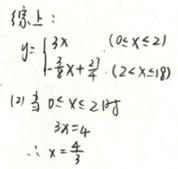 综上:
y= { 3x (0≤x≤2)
-3/8 x + 27/4 . (2<x≤18)
(2) 当 0≤x≤2时
3x=4
∴ x=4/3